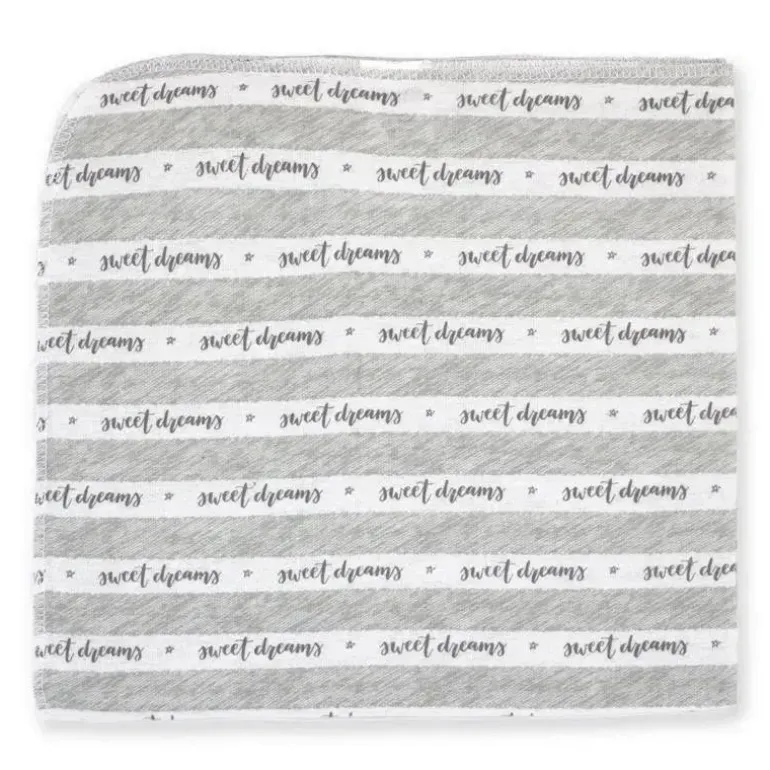 sweet dreams * sweet dreams * sweet dreams * sweet drea
eet dreams * sweet dreams * sweet dreams * sweet dreams *
s * sweet dreams * sweet dreams * sweet dreams * sweet drea
weet dreams * sweet dreams * sweet dreams * sweet dreams *
s * sweet dreams * sweet dreams * sweet dreams * sweet drea
weet dreams * sweet dreams * sweet dreams * sweet dreams *
s * sweet dreams * sweet dreams * sweet dreams * sweet drea
weet dreams * sweet dreams * sweet dreams * sweet dreams *